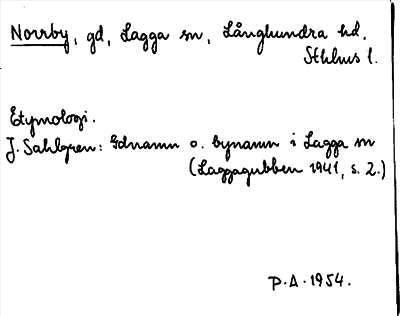 Norrby, gd, Lagga sn, Långhundra hd.
Sthlms l.
Etymologi.
J. Sahlgren: Gdnamn o. bynamn i Lagga sn
(Laggagubben 1941, s. 2.)
P.A. 1954.